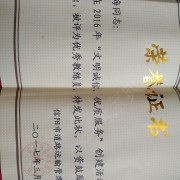 荣誉证书
同志:
2016年“文明诚信、优质服务”创建活
,被评为优秀教练员,特发此状,以资鼓
信阳市道路运输管
二〇一七年三月